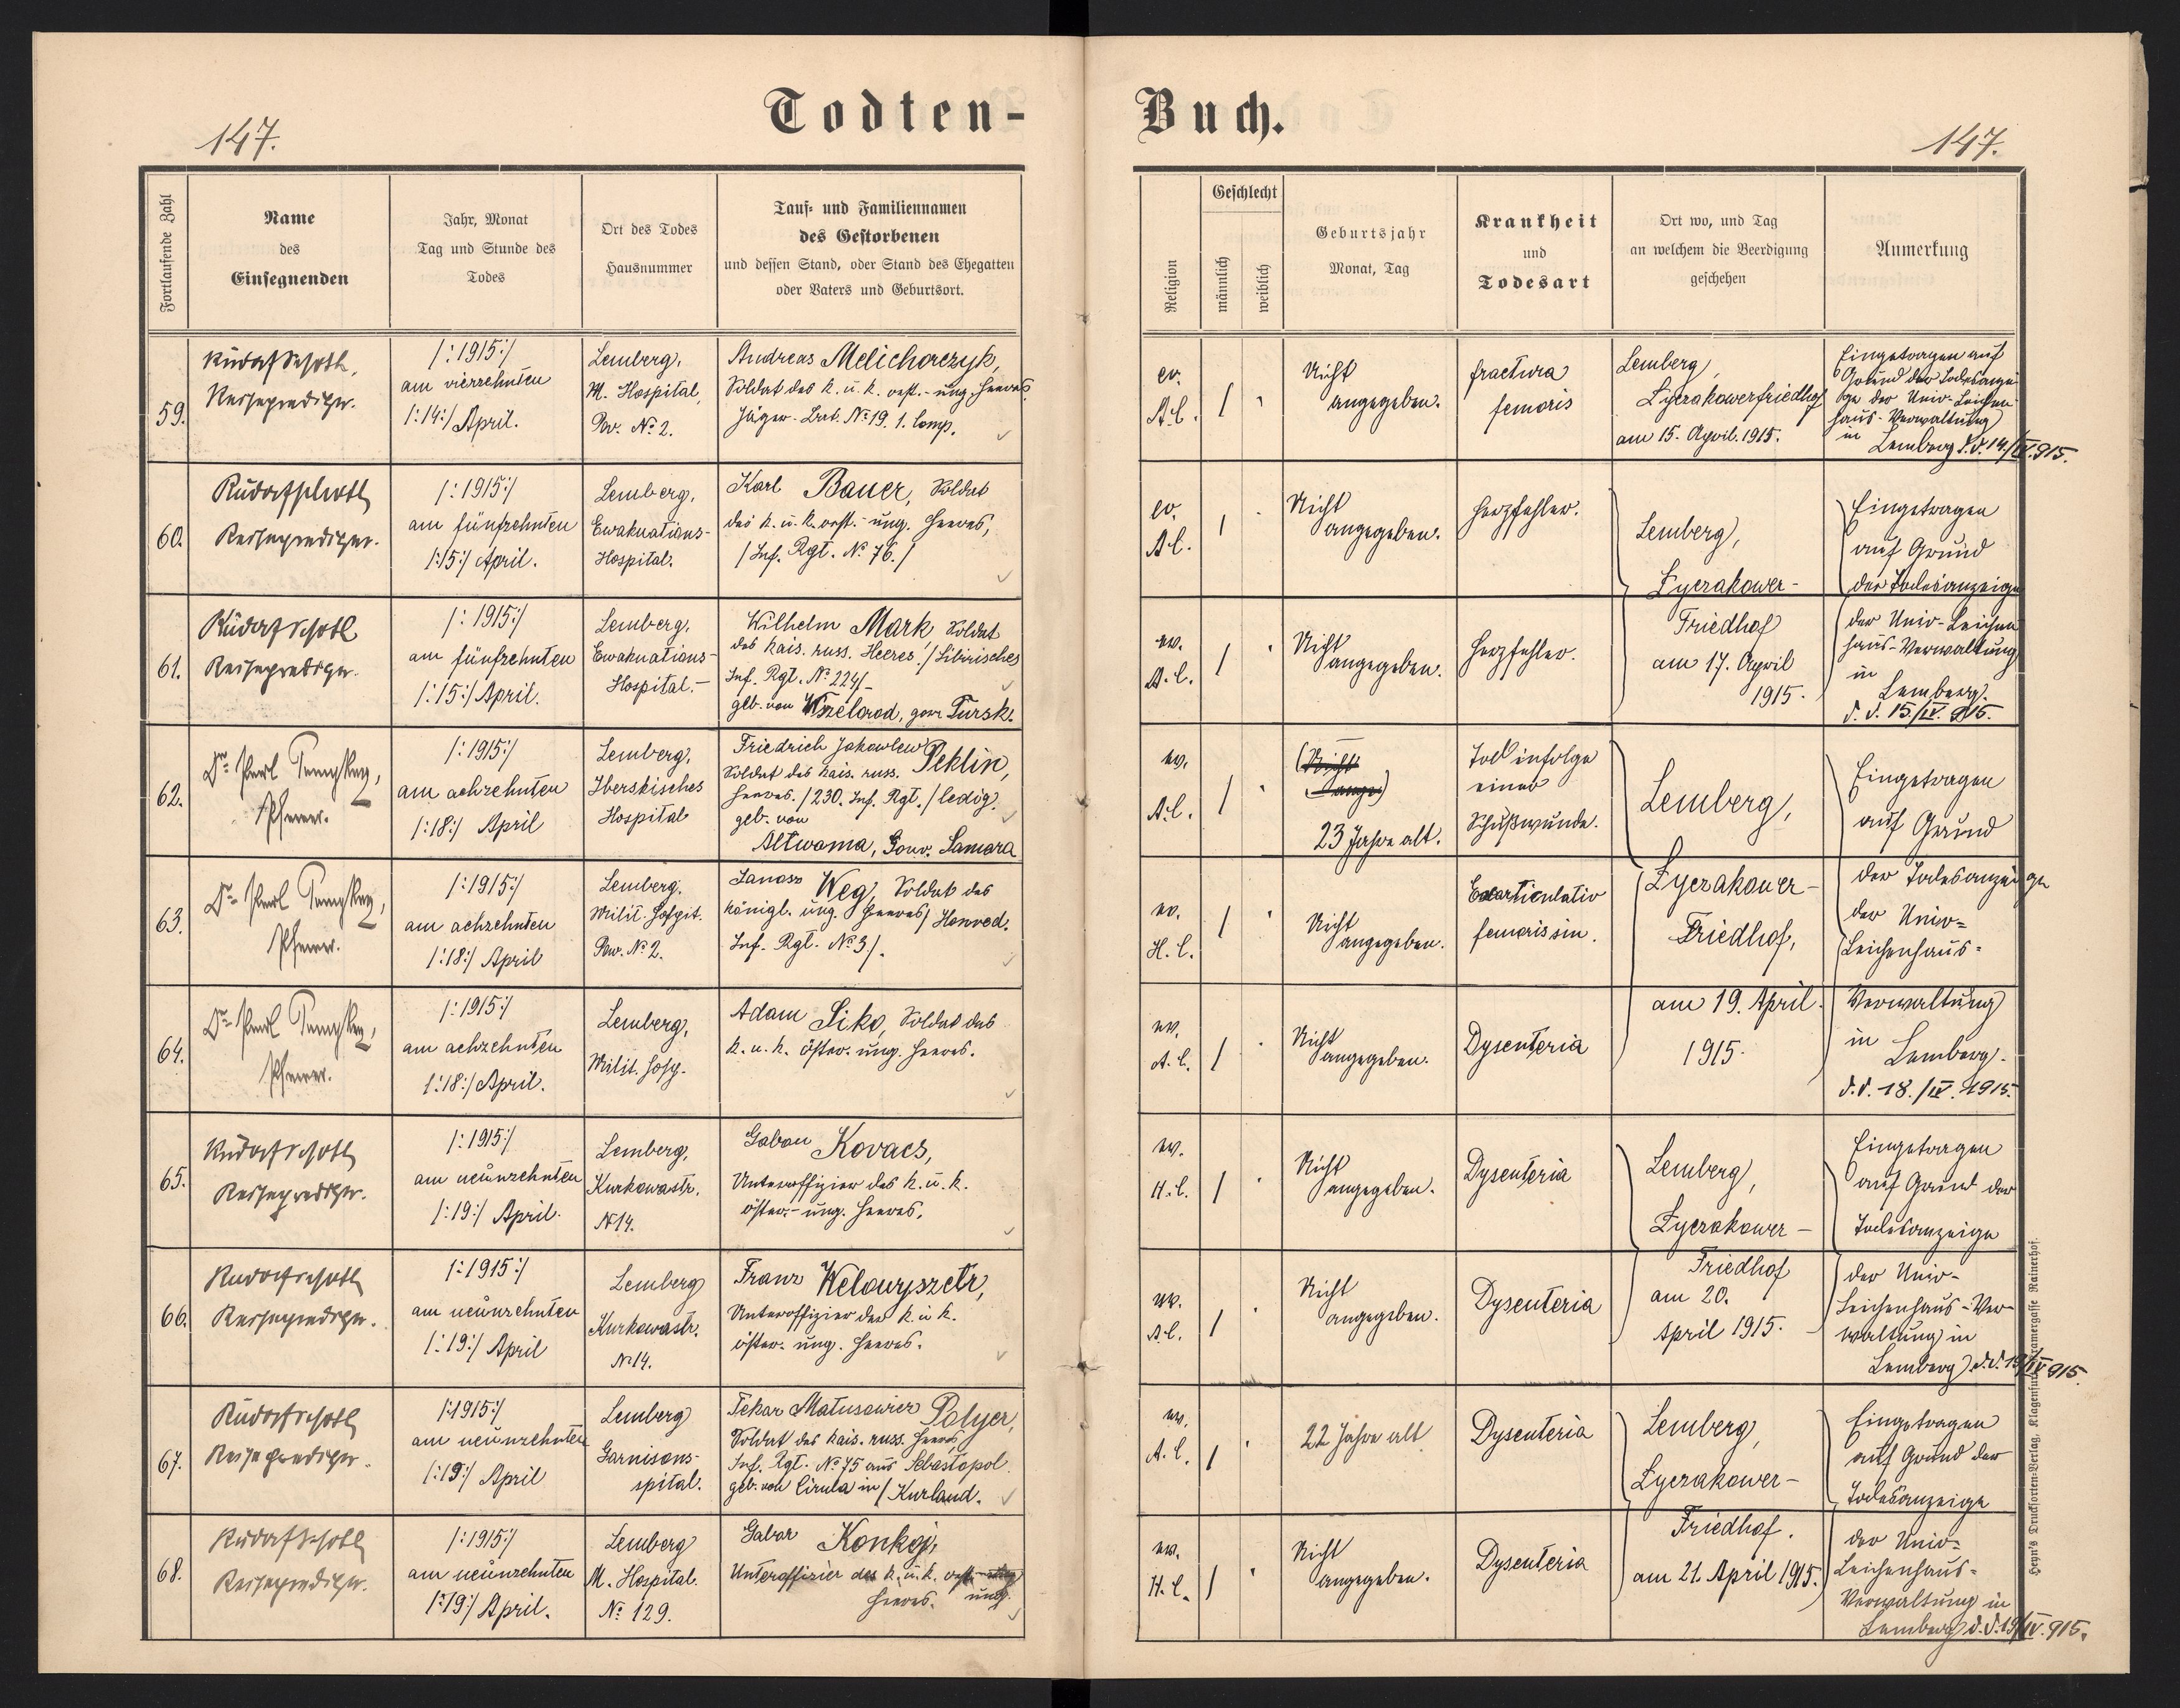 Todten-
Buch.
147.
147.
Fortlaufende Zahl
Name
des
Einsegnenden
Jahr, Monat
Tag und Stunde des
Todes
Ort des Todes
Hausnummer
Tauf- und Familiennamen
des Gestorbenen
und dessen Stand, oder Stand des Ehegatten
oder Vaters und Geburtsort.
Religion
Geschlecht
männlich
weiblich
Geburtsjahr
Monat, Tag
Krankheit
und
Todesart
Ort wo, und Tag
an welchem die Beerdigung
geschehen
Anmerkung
59.
Reiseprediger.
/:1915:/
am vierzehnten
/:14:/ April.
Lemberg.
M. Hospital,
Pav. № 2.
Andreas Melichorczyk,
Soldat des k. u. k. öst.-ung. Heeres
Jäger-Bat. № 19. 1. Comp.
ev.
A.C.
/
Nicht
angegeben.
fractura
femoris
Lemberg,
Lyczakowerfriedhof
am 15. April. 1915.
Eingetragen auf
Grund der Todesanzei
ge der Univ-Leichen
haus-Verwaltung
in
Lemberg d.d. 14./IV.915.
60.
Reiseprediger.
/:1915:/
am fünfzehnten
/:15:/ April.
Lemberg.
Ewakuations-
Hospital.
Karl Bauer, Soldat
des k. u. k. öst.-ung. Heeres,
/Inf. Rgt. № 76./
ev.
A.C.
/
Nicht
angegeben.
Herzfehler.
Lemberg,
Lyczakower-
Eingetragen
auf Grund
der Todesanzeige
61.
Reiseprediger.
/:1915:/
am fünfzehnten
/:15:/ April.
Lemberg.
Ewakuations-
Hospital.-
Wilhelm Mark Soldat
des kais. russ. Heeres./Sibirisches
Inf. Rgt. № 224/-
geb. von
ev.
A.C.
/
Nicht
angegeben.
Herzfehler.
Friedhof
am 17. April
1915.
der Univ-Leichen
haus-Verwaltung
in
Lemberg.
d.d. 15/IV. 915.
62.
Pfarrer.
/:1915:/
am achzehnten
/:18:/ April
Lemberg.
Iberskisches
Hospital
Friedrich Jakowlew Peklin,
Soldat des kais. russ.
Heeres. /230. Inf. Rgt./ ledig.
geb. von
Altwoma, Gouv. Samara
ev.
A.C.
/
23 Jahre alt.
Tod infolge
einer
Schußwunde.
Lemberg,
Eingetragen
auf Grund
63.
Pfarrer.
/:1915:/
am achzehnten
/:18:/ April
Lemberg.
Milit. Hospit.
Pav. № 2.
Janoss Weg, Soldat des
königl. ung. Heeres/ Honved.
Inf. Rgt. № 3/.
ev.
H.C.
/
Nicht
angegeben.
Exarticulatio
femoris sin.
Lyczakower-
Friedhof,
der Todesanzeige
der Univ=
Leichenhaus=
64.
Pfarrer.
/:1915:/
am achzehnten
/:18:/ April.
Lemberg,
Milit. Hosp.
Adam Siko, Soldat des
k. u. k. öster. ung. Heeres.
ev.
A.C.
/
Nicht
angegeben.
Dysenteria
am 19. April.
1915.
Verwaltung
in
Lemberg.
d.d. 18./IV. 1915.
65.
Reiseprediger.
/:1915:/
am neunzehnten
/:19:/ April.
Lemberg,
Kurkowastr.
№ 14.
Kovacs,
Unteroffizier des k. u. k.
öster.-ung. Heeres.
ev.
H.C.
/
Nicht
angegeben.
Dysenteria
Lemberg,
Lyczakower-
Eingetragen
auf Grund der
Todesanzeige
66.
Reiseprediger.
/:1915:/
am neunzehnten
/:19:/ April
Lemberg
Kurkowastr.
№ 14.
Franz
Unteroffizier des k. u. k.
öster. ung. Heeres.
ev.
A.C.
/
Nicht
angegeben.
Dysenteria
Friedhof
am 20.
April 1915.
der Univ-
Leichenhaus-Ver-
waltung in
Lemberg d.d. 19/IV 915.
67.
Reiseprediger.
/:1915:/
am neunzehnten
/:19:/ April
Lemberg
Garnisons-
spital.
Polyer,
Soldat des kais. russ. Heeres,
Inf. Rgt. № 75 aus Sebastopol.
geb. von Cirula in / Kurland.
ev.
A.C.
/
22 Jahre alt
Dysenteria
Lemberg,
Lyczakower-
Eingetragen
auf Grund der
Todesanzeige
68.
Reiseprediger.
/:1915:/
am neunzehnten
/:19:/ April.
Lemberg
M. Hospital.
№ 129.
Gabor
Unteroffizier des k. u. k. öst.-
ung.
Heeres.
ev.
H.C.
/
Nicht
angegeben.
Dysenteria
Friedhof.
am 21. April 1915.
der Univ=
Leichenhaus=
Verwaltung in
Lemberg d.d. 19/IV. 915.